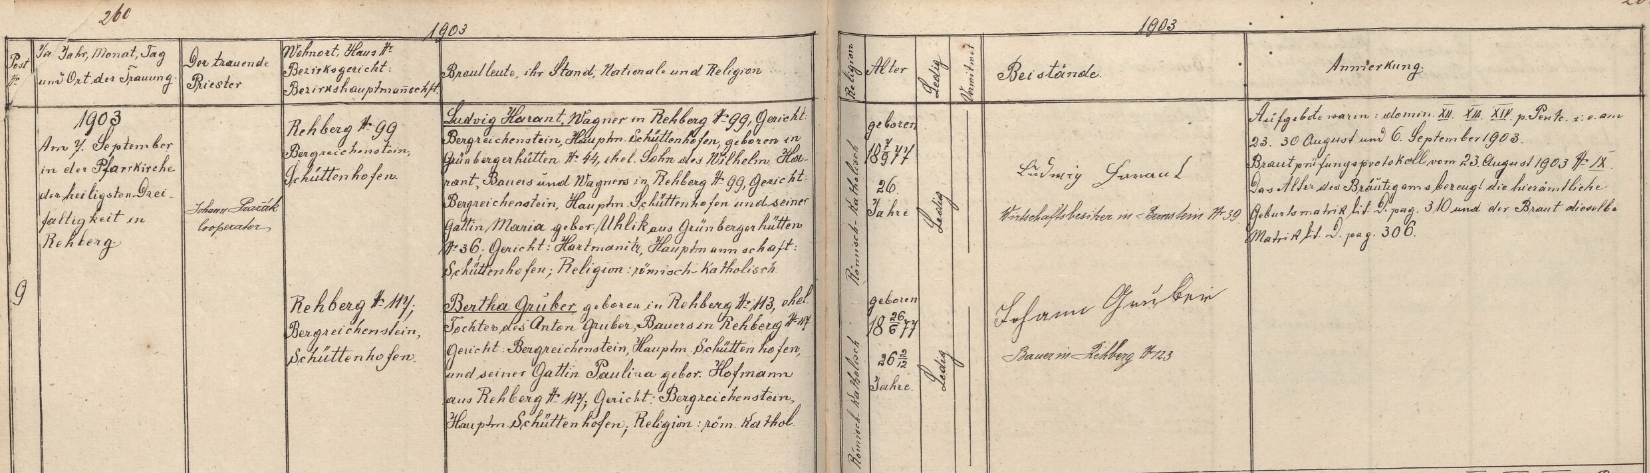 260
1903
Post N°
Im Jahr, Monat, Tag
und Ort der Trauung.
Der trauende
Priester
Wohnort, Haus N°
Bezirksgericht:
Bezirkshauptmannschft.
Brautleute, ihr Stand, Nationale und Religion
1903
Am 7. September
in der Pfarrkirche
der heiligsten Drei-
faltigkeit in
Rehberg
9
Johann
Cooperator
Rehberg N° 99
Bergreichenstein,
Schüttenhofen.
Ludvig Harant, Wagner in Rehberg N° 99, Gericht:
Bergreichenstein, Hauptm. Schüttenhofen, geboren in
Grünbergerhütten N° 44, ehel. Sohn des Wilhelm Ha-
rant, Bauers und Wagners in Rehberg N° 99, Gericht:
Bergreichenstein, Hauptm. Schüttenhofen und seiner
Gattin Maria gebor. Uhlik aus Grünbergerhütten
N° 36, Gericht: Hartmanitz, Hauptmannschaft:
Schüttenhofen; Religion: römisch-katholisch
Rehberg N° 117;
Bergreichenstein,
Schüttenhofen.
Bertha Gruber, geboren in Rehberg N° 113, ehel.
Tochter des Anton Gruber, Bauers in Rehberg N° 117
Gericht: Bergreichenstein, Hauptm. Schüttenhofen,
und seiner Gattin Paulina gebor. Hofmann
aus Rehberg N° 117; Gericht: Bergreichenstein,
Hauptm. Schüttenhofen; Religion: röm. kathol.
1903
Religion
Alter
Ledig
Verwitwet
Beistände.
Anmerkung.
Römisch-katholisch
geboren
18 7/9 77
26.
Jahre
Ledig
Ludwig Harant
Wirtschaftsbesitzer in N° 39
Aufgebote waren: domin. XII. XIII. XIV. p. Pent. i. e. am
23. 30 August und 6. September 1903.
Brautprüfungsprotokoll vom 23. August 1903 N° IX.
Das Alter des Bräutigams bezeugt die hierämtliche
Geburtsmatrik Lit. D. pag. 310 und der Braut dieselbe
Matrik Lit. D. pag. 306.
Römisch katholisch
geboren
18 26/6 77
26 2/12
Jahre.
Ledig
Johann Gruber
Bauer in Rehberg N° 123